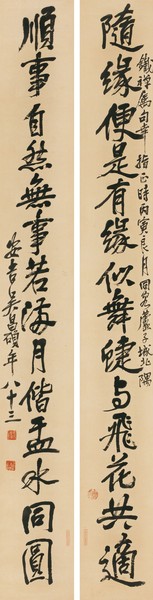 隨緣便是有緣似舞蜨与飛花共適
鐵禪屬句幸指正時丙寅良月同客蘆子城北隅
順事自然無事若海月偕盂水同圓
安吉吳昌碩年八十三